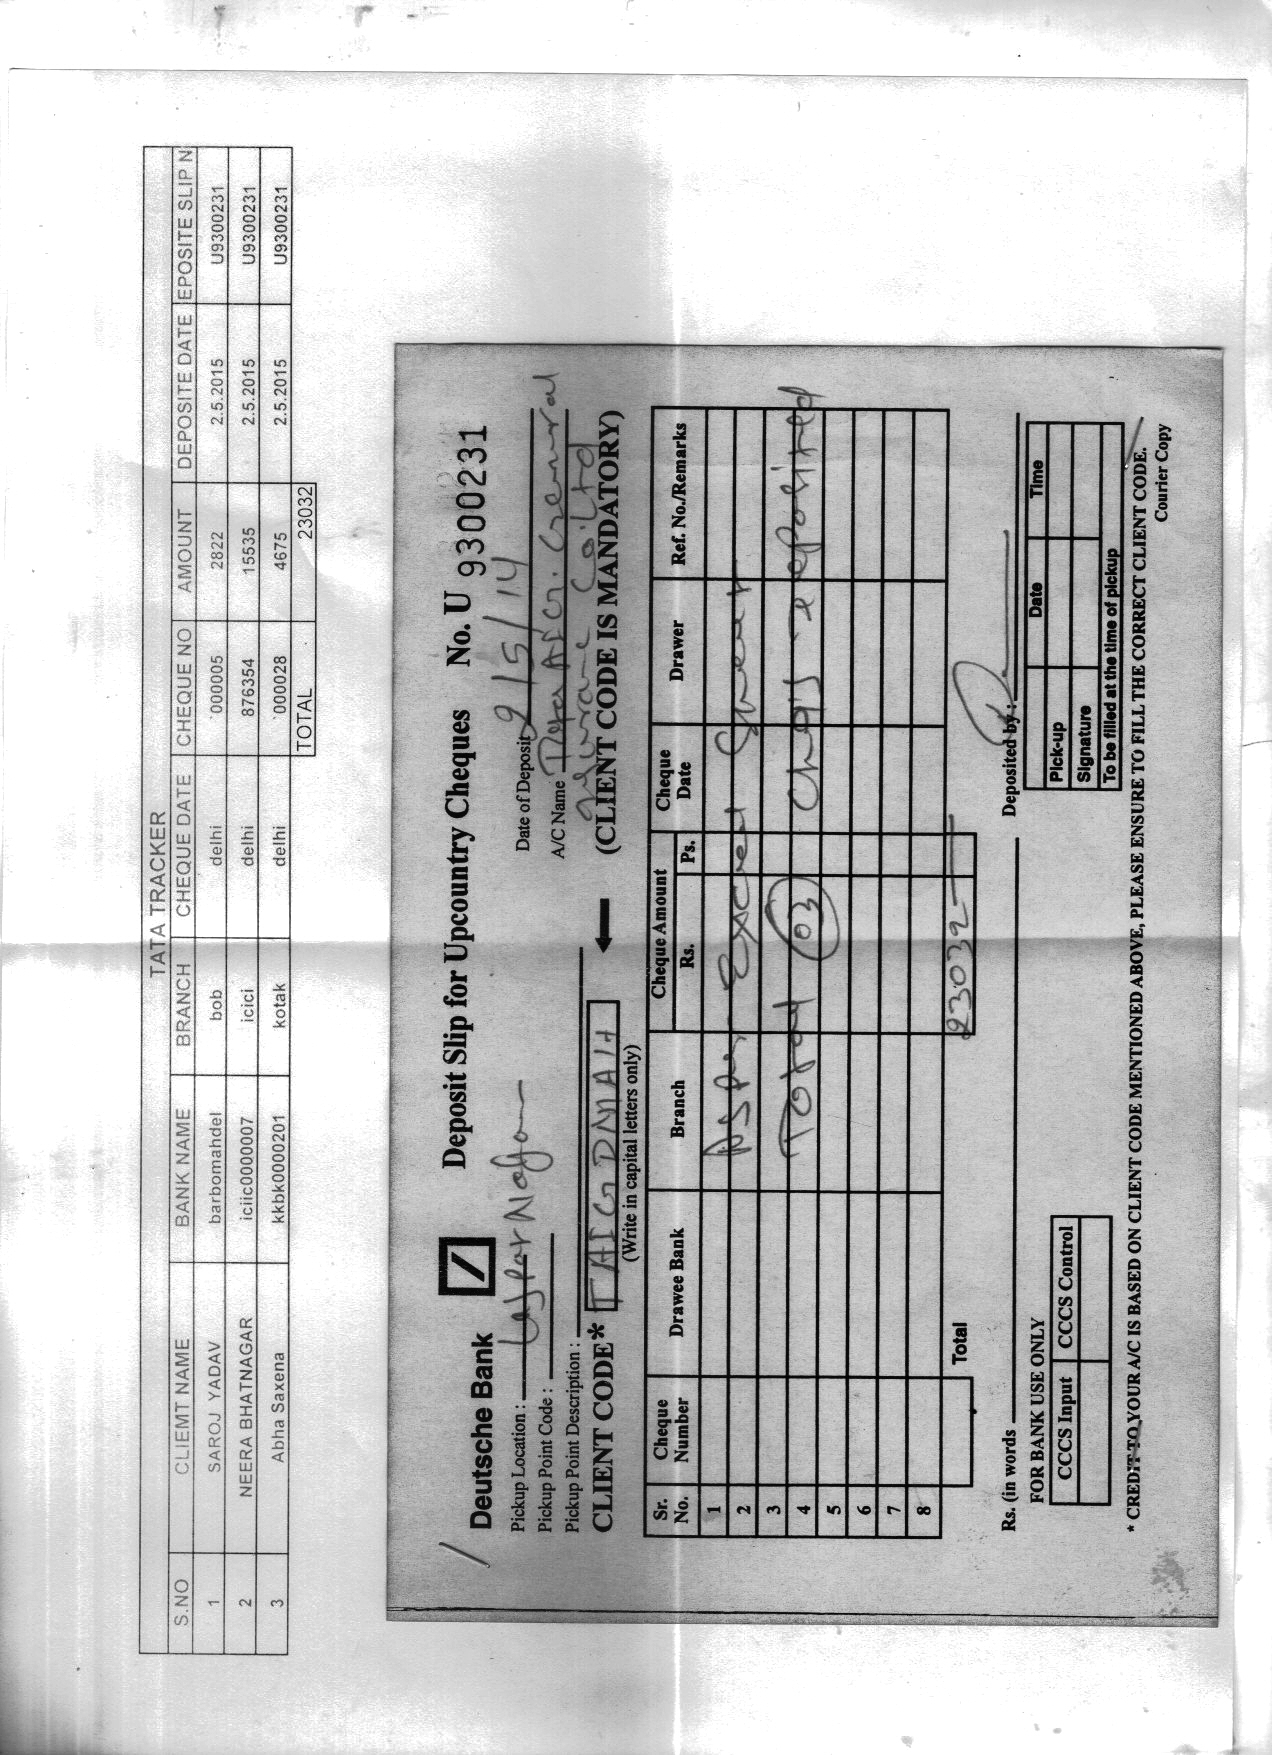 TATA TRACKER
S.NO CLIEMT NAME BANK NAME BRANCH CHEQUE DATE CHEQUE NO AMOUNT DEPOSITE DATE EPOSITE SLIP N
1 SAROJ YADAV barbomahdel bob delhi '000005 2822 2.5.2015 U9300231
2 NEERA BHATNAGAR iciic0000007 icici delhi 876354 15535 2.5.2015 U9300231
3 Abha Saxena kkbk0000201 kotak delhi '000028 4675 2.5.2015 U9300231
TOTAL 23032
Deutsche Bank Deposit Slip for Upcountry Cheques No. U 9300231
Pickup Location : Lajpat Nagar Date of Deposit 2/5/14
Pickup Point Code : A/C Name Tata AIG. General
Pickup Point Description : Insurance Co. Ltd
CLIENT CODE* TAIGDMAH (CLIENT CODE IS MANDATORY)
(Write in capital letters only)
Sr. No. Cheque Number Drawee Bank Branch Cheque Amount Rs. Ps. Cheque Date Drawer Ref. No./Remarks
1
2 As per Excel Sheet
3
4 Total 03 Chq's Deposited
5
6
7
8
Total 23032
Rs. (in words Deposited by :
FOR BANK USE ONLY
CCCS Input CCCS Control
Date Time
Pick-up
Signature
To be filled at the time of pickup
* CREDIT TO YOUR A/C IS BASED ON CLIENT CODE MENTIONED ABOVE, PLEASE ENSURE TO FILL THE CORRECT CLIENT CODE.
Courier Copy